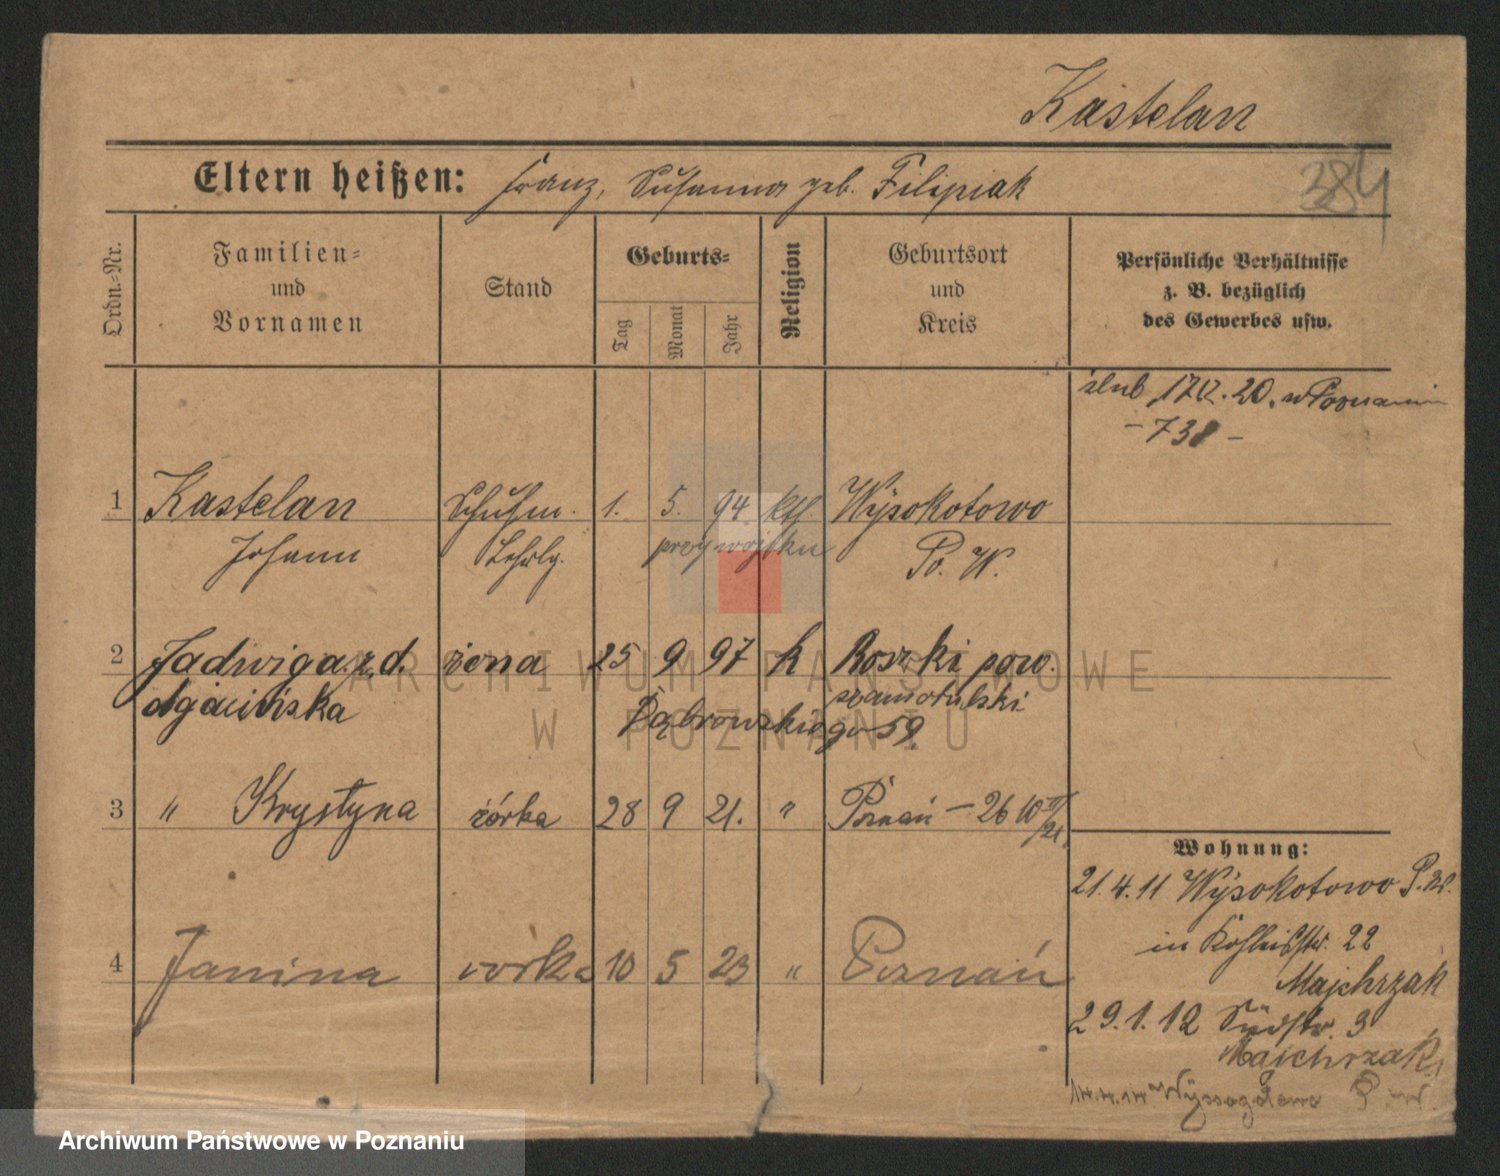 Kastelan
384
Eltern heißen: Franz, Susanna geb. Filipiak
Ordn.-Nr.
Familien-
und
Vornamen
Stand
Geburts-
Tag
Monat
Jahr
Religion
Geburtsort
und
Kreis
Persönliche Verhältnisse
z. B. bezüglich
des Gewerbes usw.
ślub 17.2.20. w Poznaniu
- 738 -
1 Kastelan Schuhm. 1. 5. 94. kth Wysokotowo
Johann Lehrlg. przy wojsku Po. W.
2 Jadwiga z d. żona 25 9 97 k Roszki pow.
szamotulski
Dąbrowskiego 59
3 " Krystyna córka 28 9 21. " Poznań - 26 10
4 Janina córka 10 5 23 " Poznań
Wohnung:
21.4.11 Wysokotowo P.W.
in 22
Majchrzak
29.1.12 Südstr. 3
Majchrzak
14.4.14 P. W.
ARCHIWUM PAŃSTWOWE
W POZNANIU
Archiwum Państwowe w Poznaniu